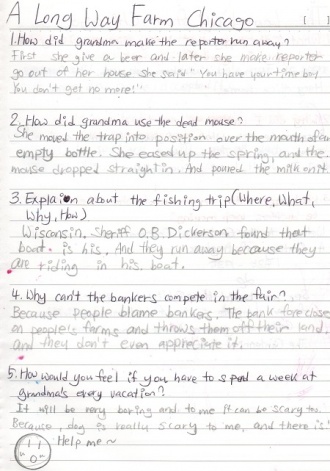 A Long Way Farm Chicago
1. How did grandma make the reporter run away?
First she give a beer and later she make reporter
go out of her house She said "You have your time boy
You don't get no more!"
2. How did grandma use the dead mouse?
She moved the trap into position over the mouth of an
empty bottle. She eased up the spring, and the
mouse dropped straight in. And poured the milk on it.
3. Explaion about the fishing trip (Where, What,
Why, How)
Wisconsin. Sheriff O.B. Dickerson found that
boat is his. And they run away because they
are riding in his boat.
4. Why can't the bankers compete in the fair?
Because people blame bankers. The bank fore close
on people's farms and throws them off their land,
and they don't even appreciate it.
5. How would you feel if you have to spend a week at
grandma's every vacation?
It will be very boring and to me it can be scary too.
Because, dog is really scary to me, and there is!
Help me~